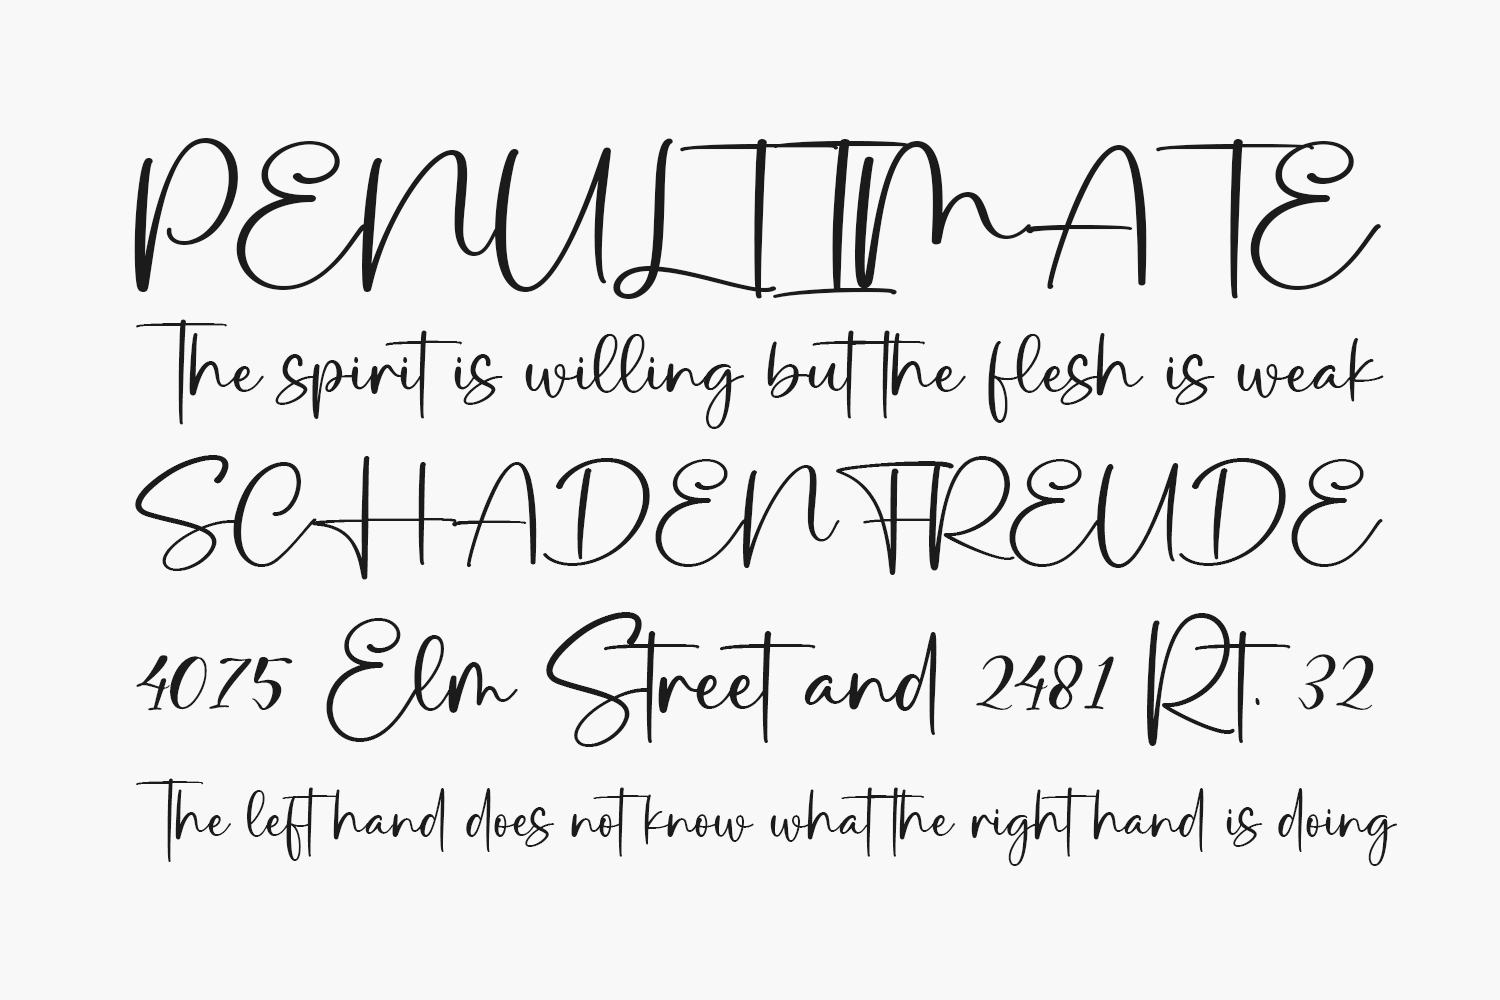 PENULTIMATE
The spirit is willing but the flesh is weak
SCHADENFREUDE
4075 Elm Street and 2481 Rt. 32
The left hand does not know what the right hand is doing